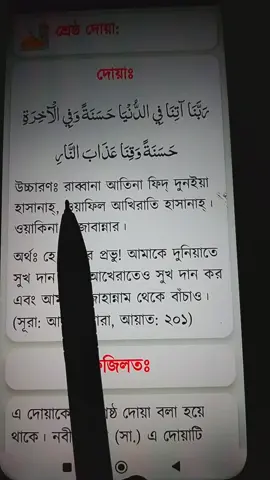 শ্রেষ্ঠ দোয়া:
দোয়াঃ
رَبَّنَا آتِنَا فِي الدُّنْيَا حَسَنَةً وَفِي الْآخِرَةِ
حَسَنَةً وَقِنَا عَذَابَ النَّارِ
উচ্চারণঃ রাব্বানা আতিনা ফিদ্ দুনইয়া
হাসানাহ্, ওয়াফিল আখিরাতি হাসানাহ্।
ওয়াকিনা
অর্থঃ প্রভু! আমাকে দুনিয়াতে
সুখ দান আখেরাতেও সুখ দান কর
এবং জাহান্নাম থেকে বাঁচাও।
(সূরা: আয়াত: ২০১)
এ দোয়াকে দোয়া বলা হয়ে
থাকে। নবী (সা.) এ দোয়াটি